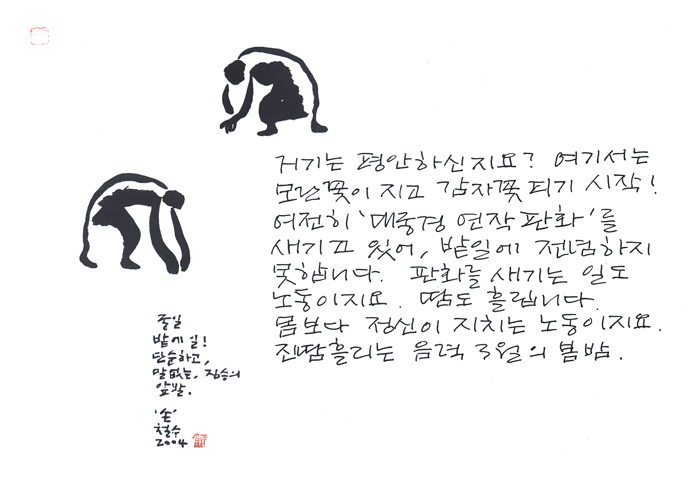 거기는 평안하신지요? 여기서는
모란꽃이 지고 감자꽃 피기 시작!
여전히 '대종경 연작 판화'를
새기고 있어, 밭일에 전념하지
못합니다. 판화를 새기는 일도
노동이지요. 땀도 흘립니다.
몸보다 정신이 지치는 노동이지요.
진땀흘리는 음력 3월의 봄밤.
종일
밭에 일!
단순하고,
말없는, 짐승의
앞발.
'손'
철수
2004